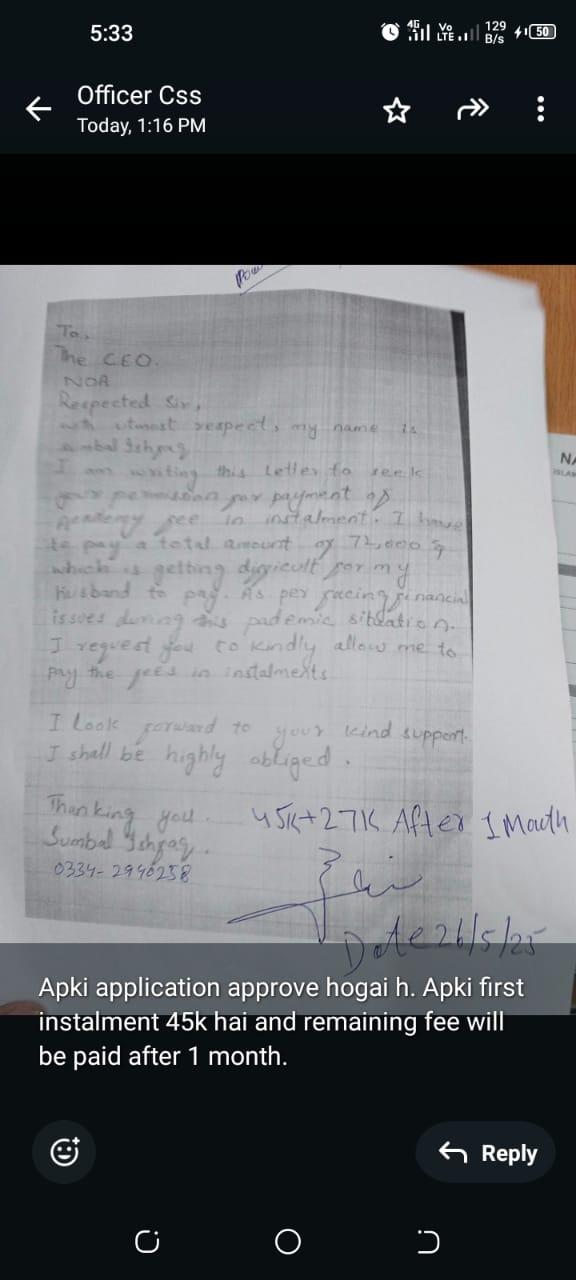 5:33
4G
Vo
LTE
129
B/s
50
Officer Css
Today, 1:16 PM
To,
The CEO.
NOA
Respected Sir,
with utmost respect, my name is
Sumbal Ishfaq
I am writing this Letter to seek
your permission for payment of
Academy fee in instalment. I have
to pay a total amount of 72,000
which is getting difficult for my
husband to pay. As per facing financial
issues during this pademic sitution.
I request you to kindly allow me to
pay the fees in instalments
I Look forward to your kind support.
I shall be highly obliged.
Thanking you.
Sumbal Ishfaq.
0334-2940258
45K+27K After 1 Month
Date 26/5/25
NA
ISLAM
Apki application approve hogai h. Apki first
instalment 45k hai and remaining fee will
be paid after 1 month.
Reply